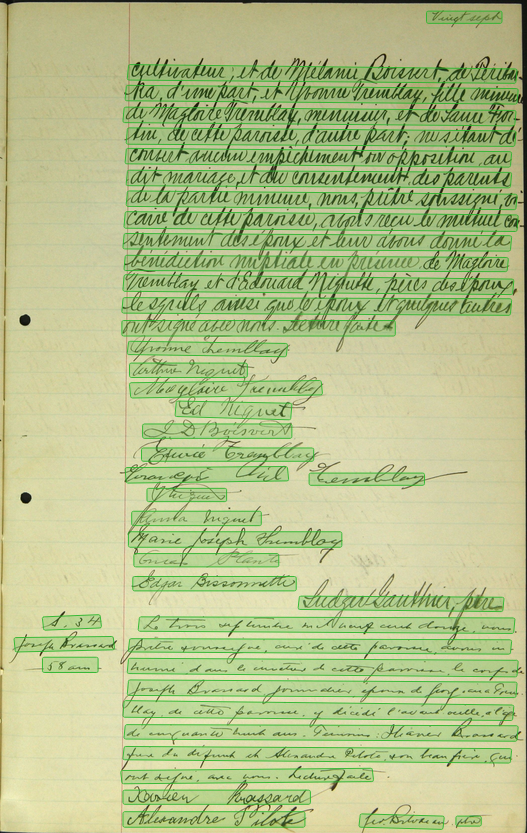 Vingt sept
cultivateur, et de Mélanie Boisvert, de Péribon-
ka, d'une part, et Yvonne Tremblay, fille mineure
de Magloire Tremblay, menuisier, et de Laure For-
tin, de cette paroisse, d'autre part; ne s'étant dé-
couvert aucun empêchement ou opposition au
dit mariage, et du consentement des parents
de la partie mineure, nous, prêtre soussigné, vi-
caire de cette paroisse, avons reçu le mutuel con-
sentement des époux et leur avons donné la
bénédiction nuptiale en présence de Magloire
Tremblay et d'Edouard Niquette, pères des époux,
lesquels ainsi que les époux et quelques autres
ont signé avec nous. Lecture faite
Yvonne Tremblay
Arthur Niquet
Magloire Tremblay
Ed Niquet
J D Boisvert
Tremblay
Tremblay
Niquet
Marie Joseph Tremblay
Plante
Edgar Bissonnette
Ludger Gauthier, ptre
S. 34
Joseph Brassard
58 ans
Le trois septembre mil neuf cent douze, nous
prêtre soussigné, curé de cette paroisse, avons in-
humé dans le cimetière de cette paroisse le corps de
Joseph Brassard, journalier, époux de Georgiana Trem-
blay, de cette paroisse, y décédé l'avant veille, à l'âge
de cinquante huit ans. Témoins: Brassard
frère du défunt et Alexandre Pilote, son beau frère, qui
ont signé, avec nous. Lecture faite
Brassard
Alexandre Pilote
ptre